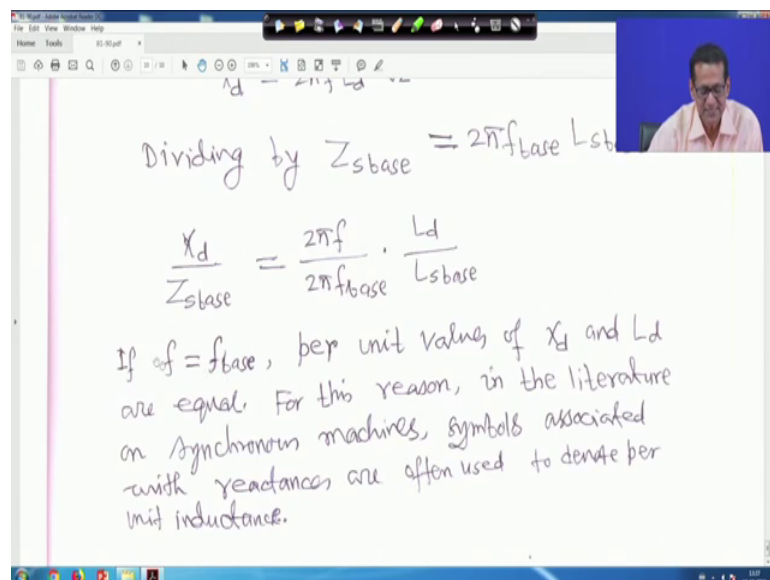 81-90.pdf - Adobe Acrobat Reader DC
File Edit View Window Help
Home Tools 81-90.pdf ×
Dividing by Z_sbase = 2πf_base L_sb
X_d / Z_sbase = 2πf / 2πf_base · L_d / L_sbase
If f = fbase, per unit values of X_d and L_d
are equal. For this reason, in the literature
on synchronous machines, symbols associated
with reactances are often used to denote per
unit inductance.